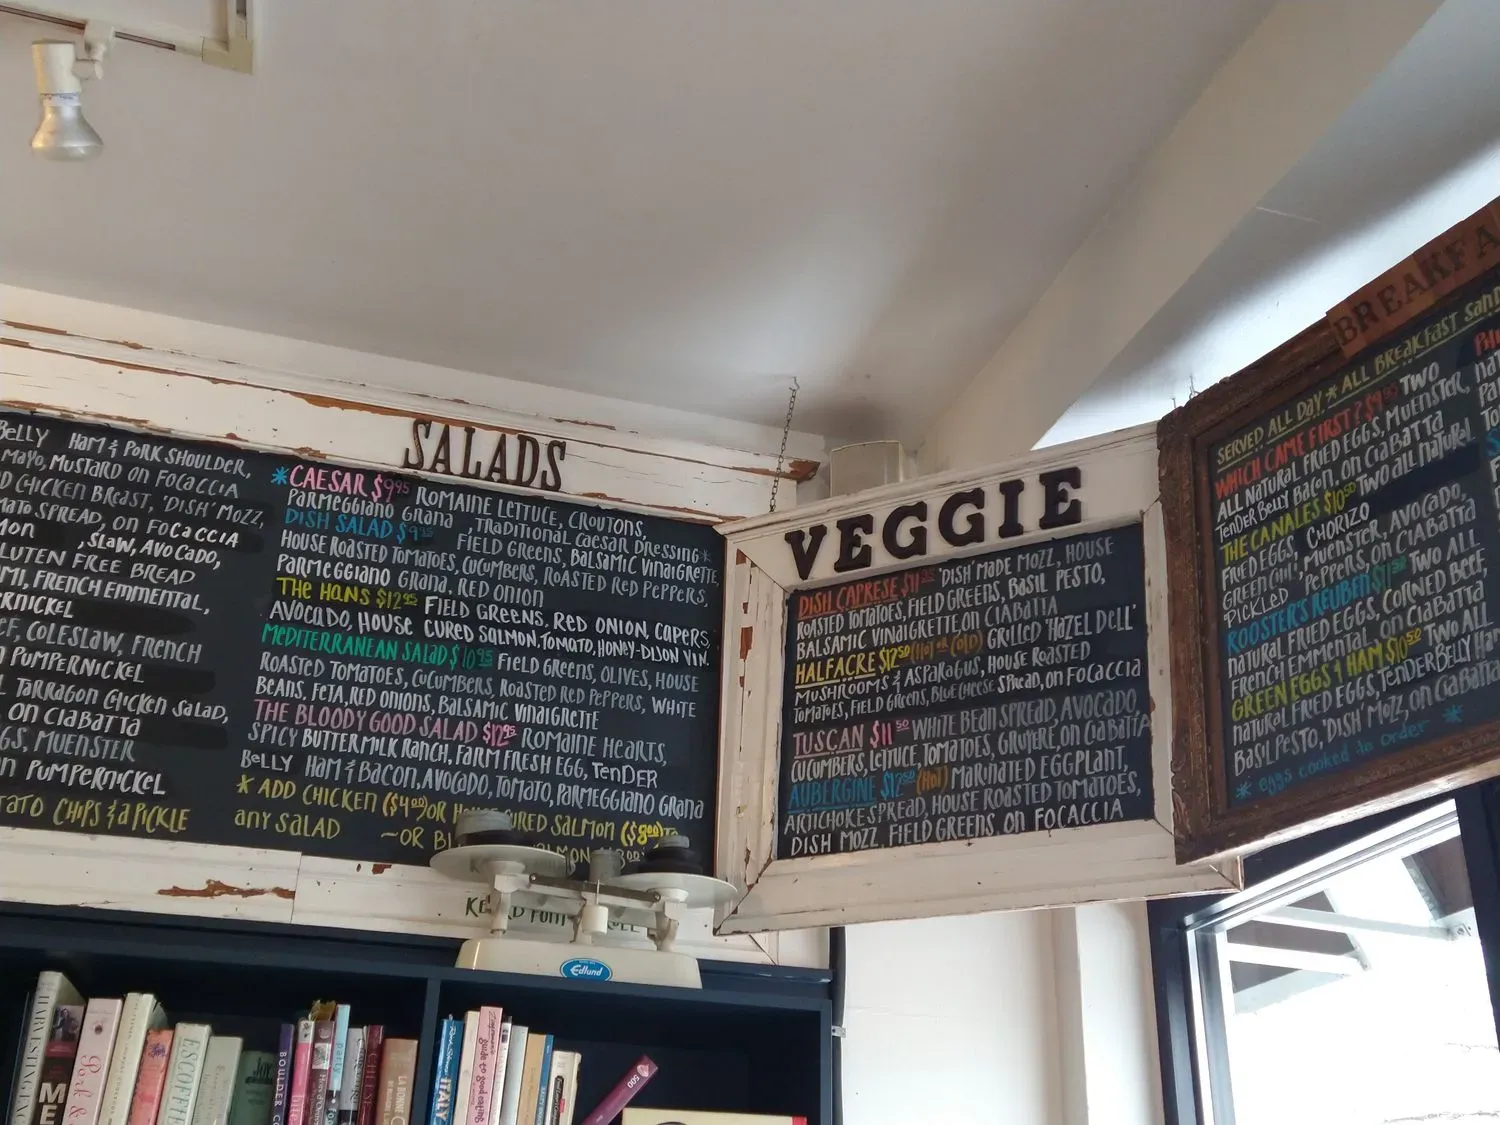 BELLY HAM & PORK SHOULDER,
MAYO, MUSTARD ON FOCACCIA
CHICKEN BREAST, 'DISH' MOZZ,
SPREAD, ON FOCACCIA
, SLAW, AVOCADO,
GLUTEN FREE BREAD
, FRENCH EMMENTAL,
COLESLAW, FRENCH
PUMPERNICKEL
TARRAGON CHICKEN SALAD,
ON CIABATTA
, MUENSTER
PUMPERNICKEL
CHIPS & A PICKLE
SALADS
*CAESAR $9.95 ROMAINE LETTUCE, CROUTONS,
PARMEGGIANO GRANA, TRADITIONAL CAESAR DRESSING*
DISH SALAD $9.95 FIELD GREENS, BALSAMIC VINAIGRETTE,
HOUSE ROASTED TOMATOES, CUCUMBERS, ROASTED RED PEPPERS,
PARMEGGIANO GRANA, RED ONION
THE HANS $12.95 FIELD GREENS, RED ONION, CAPERS,
AVOCADO, HOUSE CURED SALMON, TOMATO, HONEY-DIJON VIN.
MEDITERRANEAN SALAD $10.95 FIELD GREENS, OLIVES, HOUSE
ROASTED TOMATOES, CUCUMBERS, ROASTED RED PEPPERS, WHITE
BEANS, FETA, RED ONIONS, BALSAMIC VINAIGRETTE
THE BLOODY GOOD SALAD $12.95 ROMAINE HEARTS,
SPICY BUTTERMILK RANCH, FARM FRESH EGG, TENDER
BELLY HAM & BACON, AVOCADO, TOMATO, PARMEGGIANO GRANA
* ADD CHICKEN ($4.00) OR CURED SALMON ($8.00) TO
ANY SALAD ~OR
VEGGIE
DISH CAPRESE $11 'DISH' MADE MOZZ, HOUSE
ROASTED TOMATOES, FIELD GREENS, BASIL PESTO,
BALSAMIC VINAIGRETTE, ON CIABATTA
HALFACRE $12.50 (HOT OR COLD) GRILLED 'HAZEL DELL'
MUSHROOMS & ASPARAGUS, HOUSE ROASTED
TOMATOES, FIELD GREENS, BLUE CHEESE SPREAD, ON FOCACCIA
TUSCAN $11.50 WHITE BEAN SPREAD, AVOCADO,
CUCUMBERS, LETTUCE, TOMATOES, GRUYERE, ON CIABATTA
AUBERGINE $12.50 (HOT) MARINATED EGGPLANT,
ARTICHOKE SPREAD, HOUSE ROASTED TOMATOES,
DISH MOZZ, FIELD GREENS, ON FOCACCIA
BREAKFA
SERVED ALL DAY * ALL BREAKFAST SAND
WHICH CAME FIRST? $9 TWO
ALL NATURAL FRIED EGGS, MUENSTER,
TENDER BELLY BACON, ON CIABATTA
THE CANALES $10.50 TWO ALL NATURAL
FRIED EGGS, CHORIZO
GREEN CHILI, MUENSTER, AVOCADO,
PICKLED PEPPERS, ON CIABATTA
ROOSTER'S REUBEN $11.50 TWO ALL
NATURAL FRIED EGGS, CORNED BEEF,
FRENCH EMMENTAL, ON CIABATTA
GREEN EGGS & HAM $10.50 TWO ALL
NATURAL FRIED EGGS, TENDER BELLY HAM,
BASIL PESTO, 'DISH' MOZZ, ON CIABATTA
* eggs cooked to order *
Edlund
HARVESTING
Pork &
ESCOFFIER
BOULDER
party
CHEESE
ITALY
guide to good eating
500